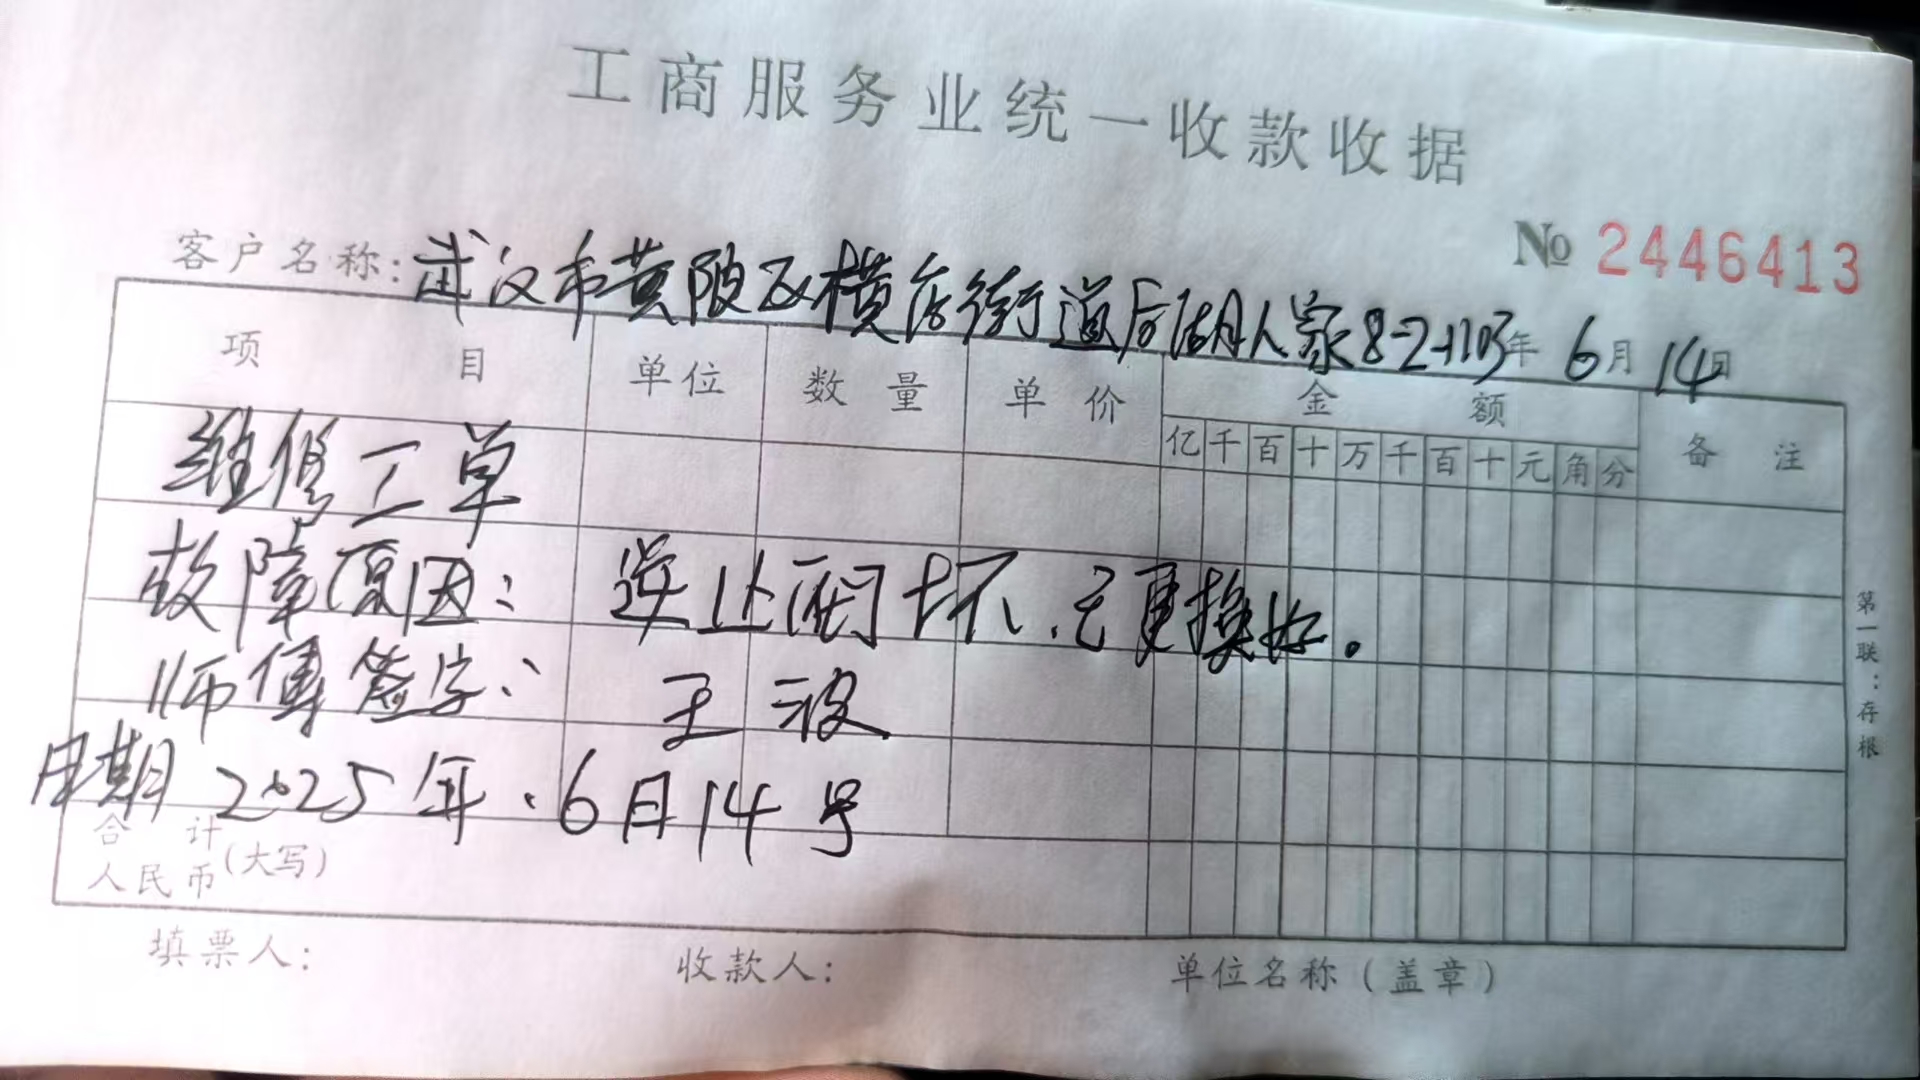 工商服务业统一收款收据
№ 2446413
客户名称:武汉市黄陂区横店街道后湖人家8-2-1103年 6月 14日
项 目 单位 数量 单价 金额 备注
亿千百十万千百十元角分
维修工单
故障原因: 逆止阀坏.已更换好。
师傅签字: 王波
日期 2025年.6月14号
合计
人民币(大写)
填票人: 收款人: 单位名称(盖章)
第一联:存根